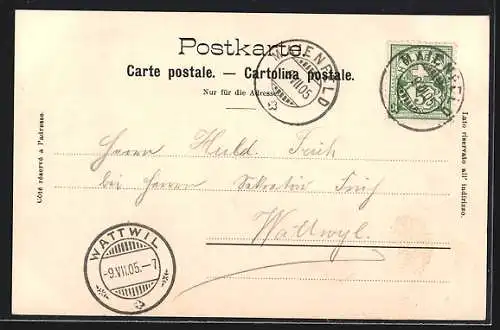 Postkarte.
Carte postale. — Cartolina postale.
Nur für die Adresse.
MAIENFELD
VII.05
MAIENFELD
5
Côté réservé à l'adresse.
Lato riservato all' indirizzo.
Herrn
bei Herrn Sekretär
Wattwyl.
WATTWIL
-9.VII.05.-7